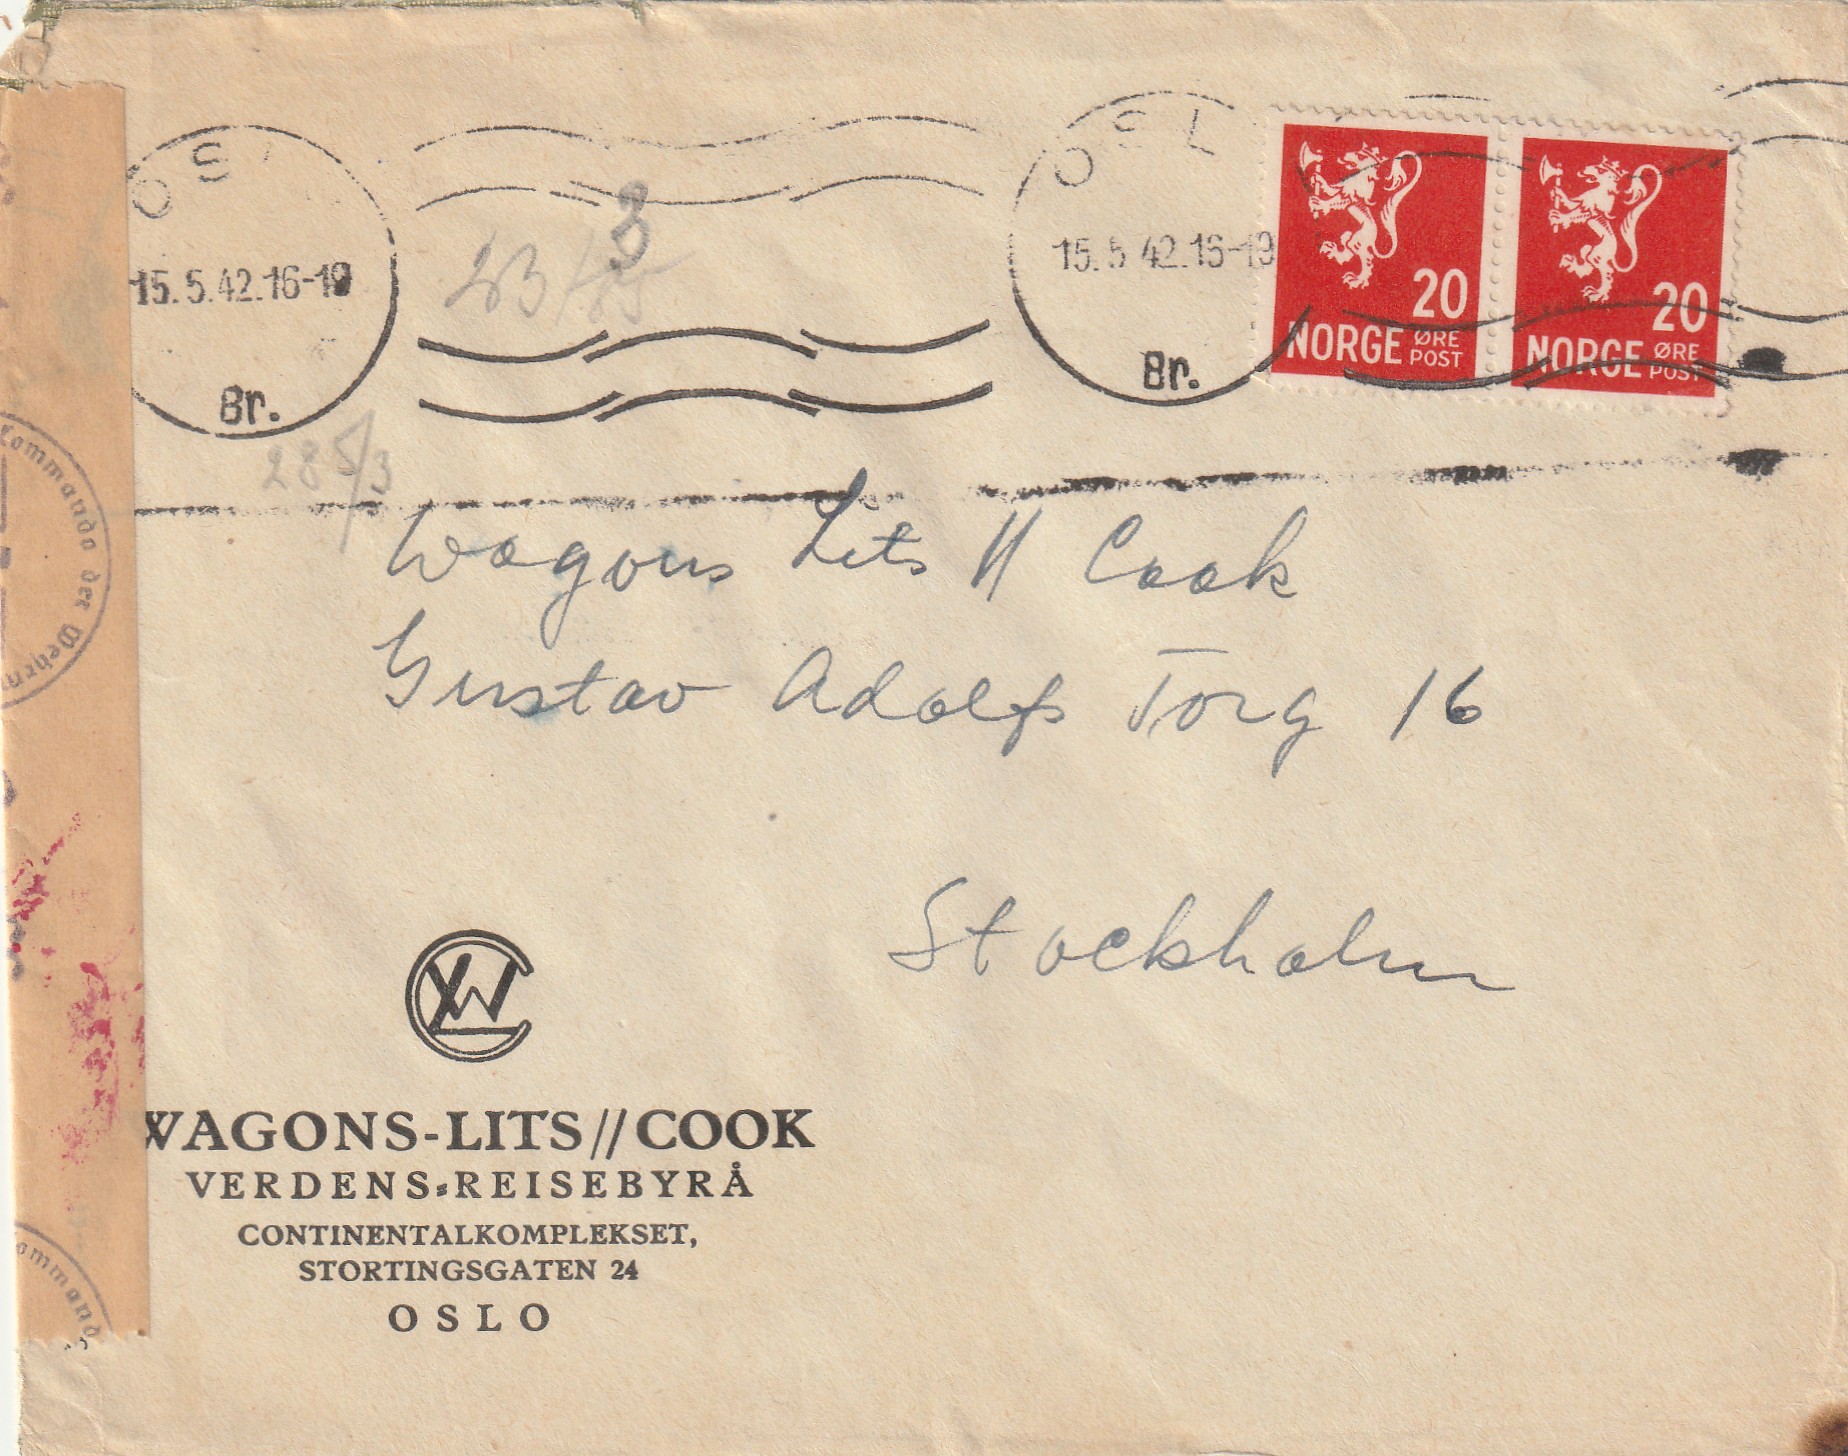 OSL
OSL
15.5.42.16-19
15.5 42.16-19
Br.
Br.
20
NORGE ØRE POST
20
NORGE ØRE POST
3
28 5/3
Wagons Lits // Cook
Gustav Adolfs Torg 16
Stockholm
Commando der Wehrm
WAGONS-LITS//COOK
VERDENS-REISEBYRÅ
CONTINENTALKOMPLEKSET,
STORTINGSGATEN 24
OSLO
ommand